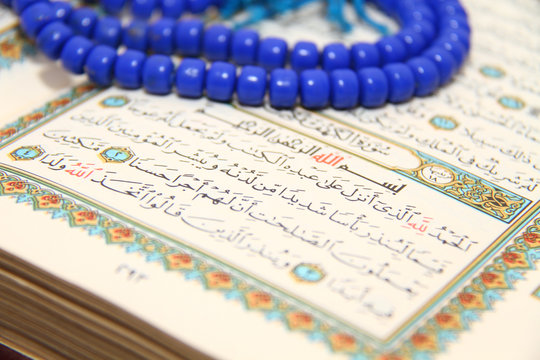 ذَٰلِكَ سَبِيلًا
لَّهُۥ شَرِيكٌ فِى ٱلْمُلْكِ وَلَمْ يَكُن لَّهُۥ
سُورَةُ الكَهْفِ
بِسْمِ ٱللَّهِ ٱلرَّحْمَٰنِ ٱلرَّحِيمِ
ٱلْحَمْدُ لِلَّهِ ٱلَّذِىٓ أَنزَلَ عَلَىٰ عَبْدِهِ ٱلْكِتَٰبَ وَلَمْ يَجْعَل لَّهُۥ عِوَجَا
قَيِّمًا لِّيُنذِرَ بَأْسًا شَدِيدًا مِّن لَّدُنْهُ وَيُبَشِّرَ ٱلْمُؤْمِنِينَ ٱلَّذِينَ
يَعْمَلُونَ ٱلصَّٰلِحَٰتِ أَنَّ لَهُمْ أَجْرًا حَسَنًا ٢ مَّٰكِثِينَ
فِيهِ أَبَدًا ٣ وَيُنذِرَ ٱلَّذِينَ قَالُوا۟ ٱتَّخَذَ ٱللَّهُ وَلَدًا
٢٩٣